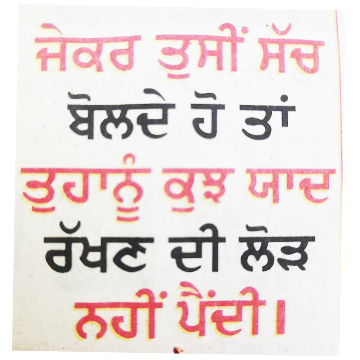 ਜੇਕਰ ਤੁਸੀਂ ਸੱਚ
ਬੋਲਦੇ ਹੋ ਤਾਂ
ਤੁਹਾਨੂੰ ਕੁਝ ਯਾਦ
ਰੱਖਣ ਦੀ ਲੋੜ
ਨਹੀਂ ਪੈਂਦੀ।